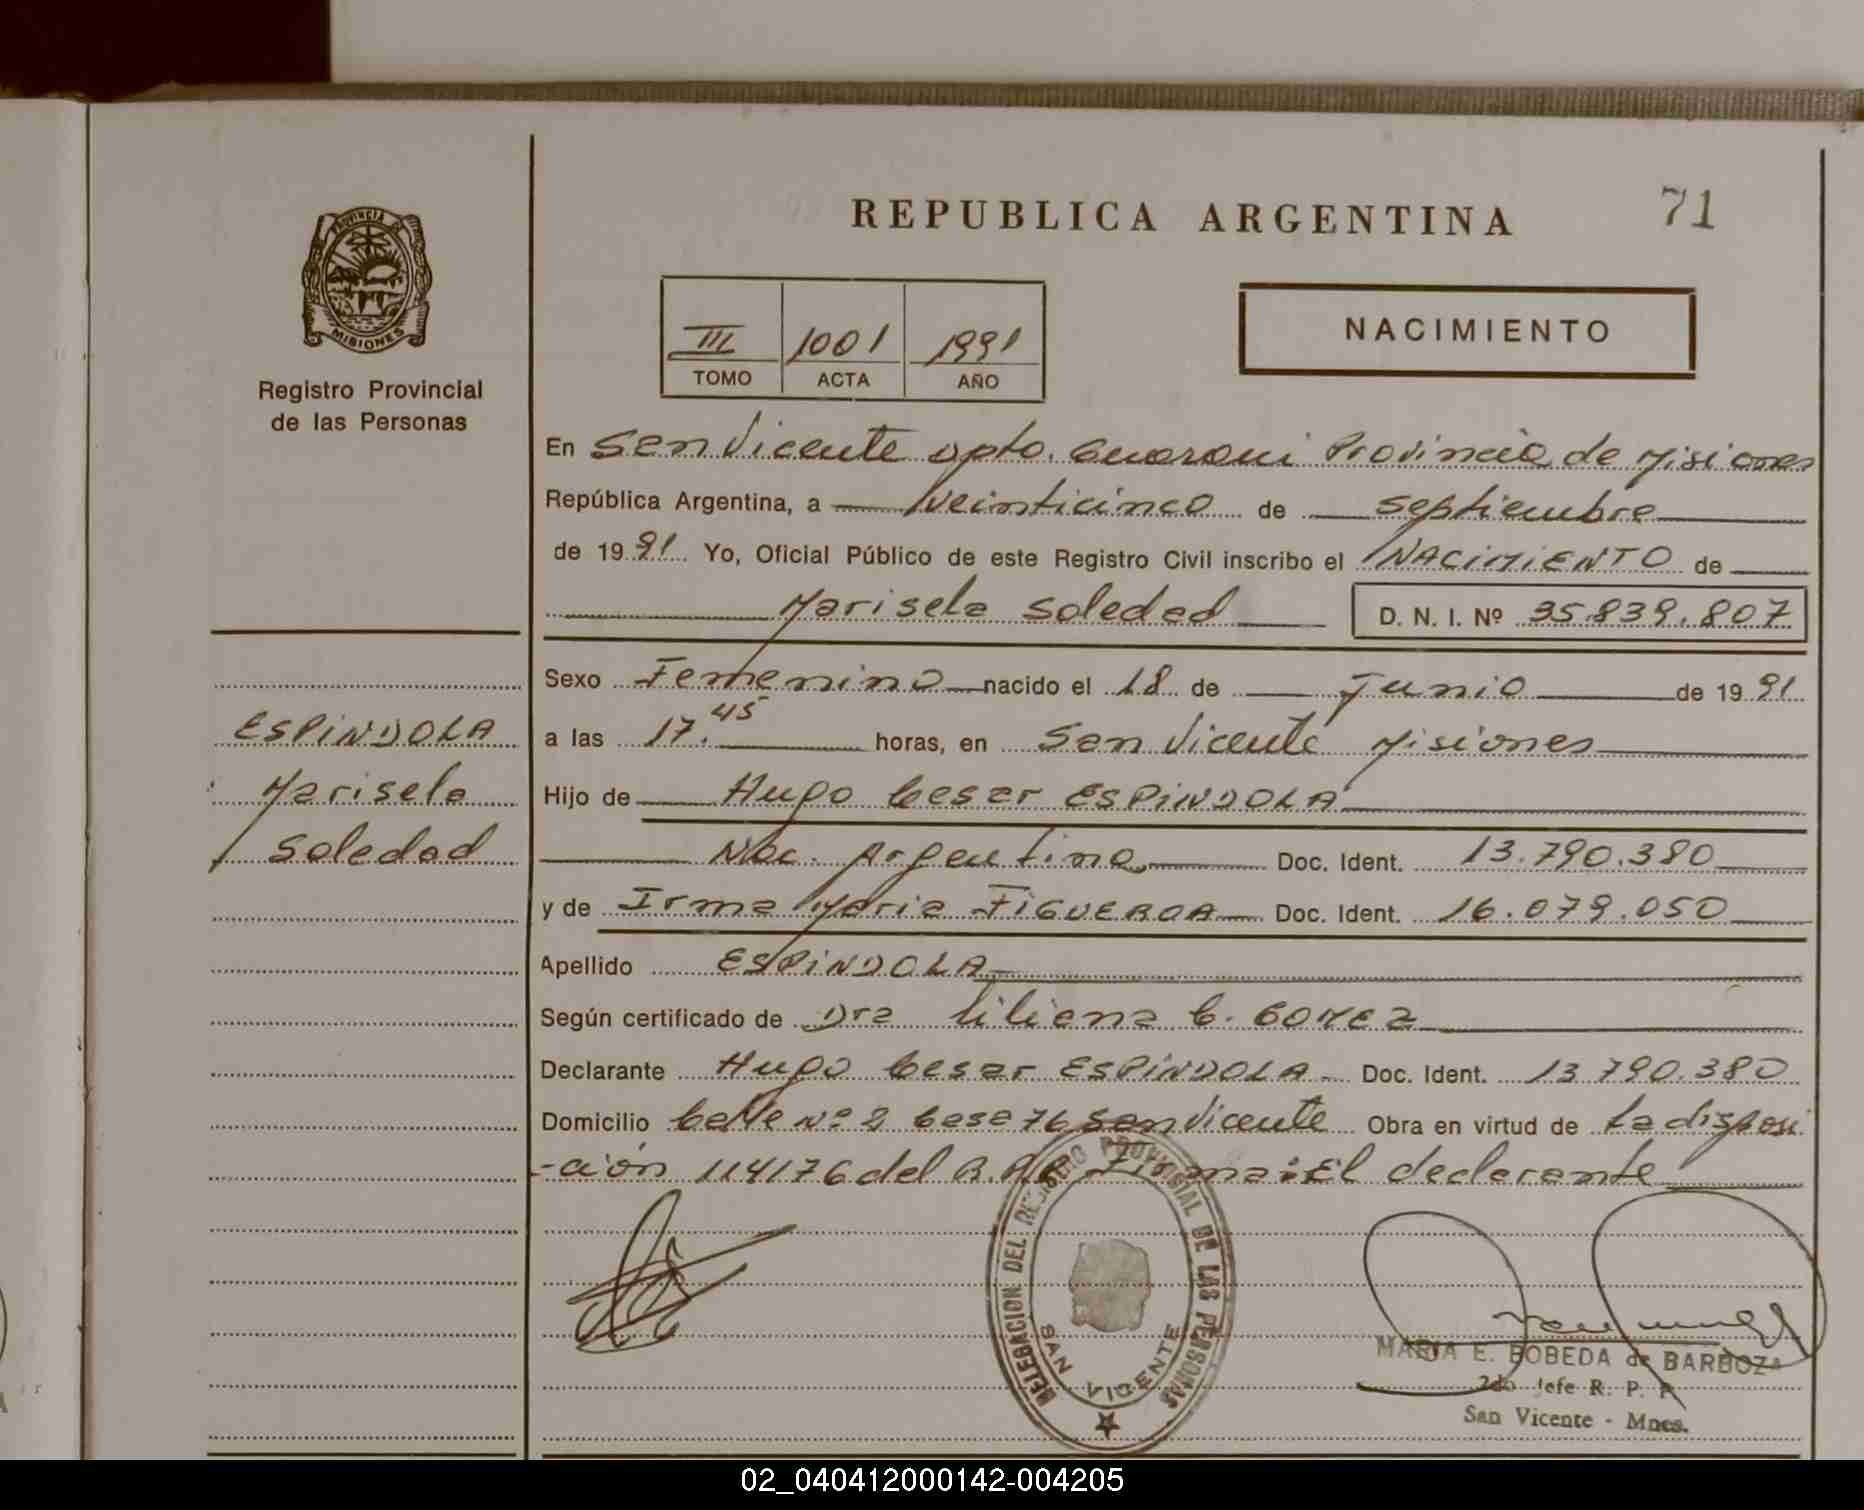 REPUBLICA ARGENTINA
71
PROVINCIA DE
MISIONES
Registro Provincial
de las Personas
III 1001 1991
TOMO ACTA AÑO
NACIMIENTO
En San Vicente Dpto. Guarani Provincia de Misiones
República Argentina, a veinticinco de Septiembre
de 1991 Yo, Oficial Público de este Registro Civil inscribo el NACIMIENTO de
Marisela Soledad D. N. I. Nº 35.839.807
Sexo Femenino nacido el 18 de Junio de 1991
a las 17.45 horas, en San Vicente Misiones
Hijo de Hugo Cesar ESPINDOLA
Nac. Argentina Doc. Ident. 13.790.380
y de Irma Maria FIGUEROA Doc. Ident. 16.079.050
Apellido ESPINDOLA
Según certificado de Dra Liliana C. GOMEZ
Declarante Hugo Cesar ESPINDOLA Doc. Ident. 13.790.380
Domicilio Calle Nº 2 Casa 76 San Vicente Obra en virtud de La disposi
-ción 114176 del Firma: El declarante
ESPINDOLA
Marisela
Soledad
DELEGACION DEL REGISTRO PROVINCIAL DE LAS PERSONAS
SAN VICENTE
MARIA E. BOBEDA de BARBOZA
2do Jefe R. P. P.
San Vicente - Mnes.
02_040412000142-004205